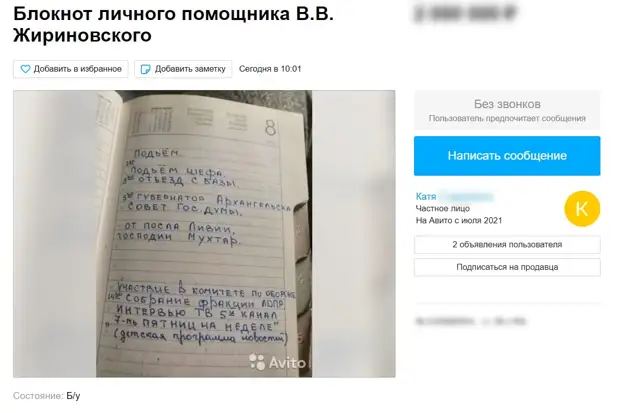 Блокнот личного помощника В.В.
Жириновского
Добавить в избранное
Добавить заметку
Сегодня в 10:01
8
ПОДЪЁМ.
ПОДЪЕМ ШЕФА.
ОТЪЕЗД С БАЗЫ.
ГУБЕРНАТОР АРХАНГЕЛЬСКА
СОВЕТ ГОС. ДУМЫ,
ОТ ПОСЛА ЛИВИИ,
ГОСПОДИН МУХТАР.
УЧАСТИЕ В КОМИТЕТЕ ПО ОБОРОНЕ
СОБРАНИЕ ФРАКЦИИ ЛДПР
ИНТЕРВЬЮ ТВ 5ый КАНАЛ
"7-мь ПЯТНИЦ НА НЕДЕЛЕ"
(детская программа новостей)
Avito
Состояние: Б/у
Без звонков
Пользователь предпочитает сообщения
Написать сообщение
Катя
Частное лицо
На Авито с июля 2021
К
2 объявления пользователя
Подписаться на продавца